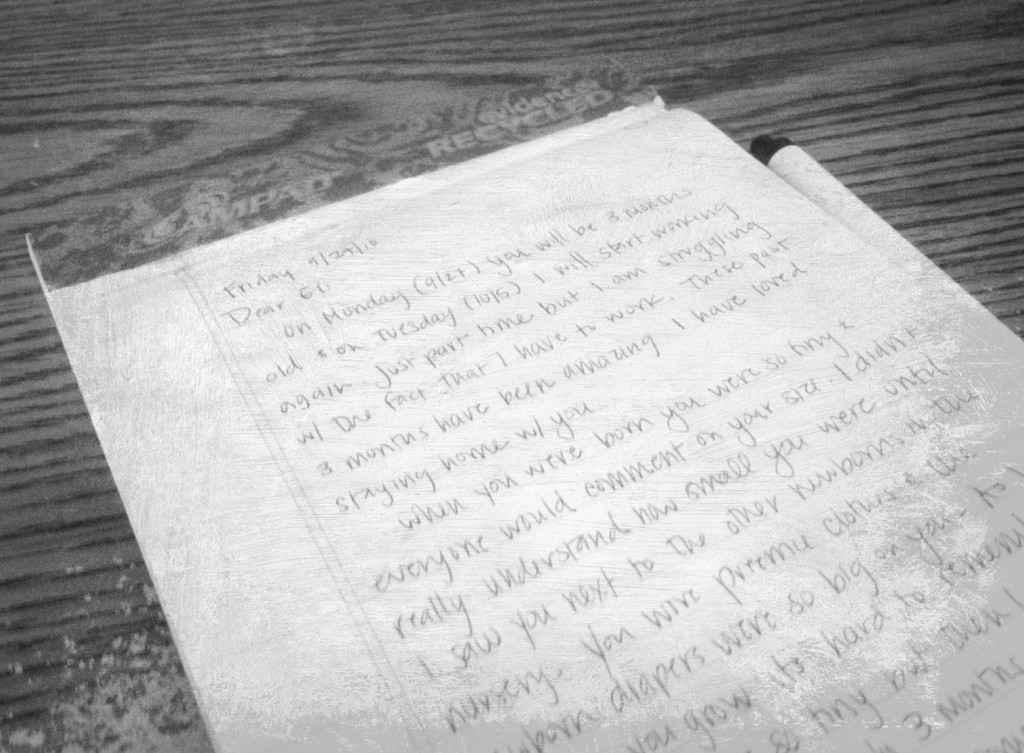 AMPAD evidence
RECYCLED
Friday 9/24/10
Dear Eli
on Monday (9/27) you will be 3 months
old & on Tuesday (10/5) I will start working
again. Just part time but I am struggling
w/ the fact that I have to work. These past
3 months have been amazing I have loved
staying home w/ you
when you were born you were so tiny &
everyone would comment on your size. I didn't
really understand how small you were until
I saw you next to the other newborns in the
nursery. You wore preemie clothes & the
newborn diapers were so big on you.
you grow its hard to
& tiny but then I
3 months